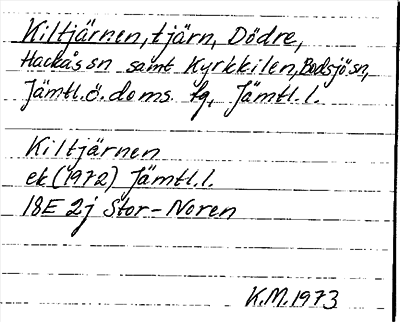 Kiltjärnen, tjärn, Dödre,
Hackås sn samt Kyrkkilen, Bodsjö sn,
Jämtl.ö. doms. tg, Jämtl. l.
Kiltjärnen
ek (1972) Jämtl. l.
18E 2j Stor-Noren
K.M. 1973